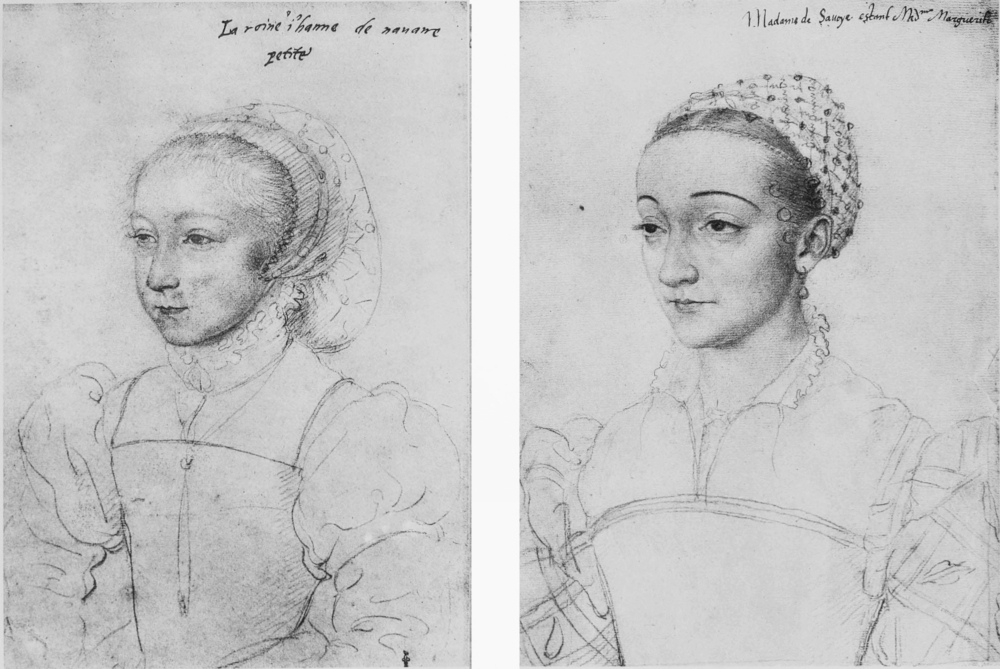 La roine ihanne de navarre
petite
Madame de Savoye estant Mad^me Marguerite